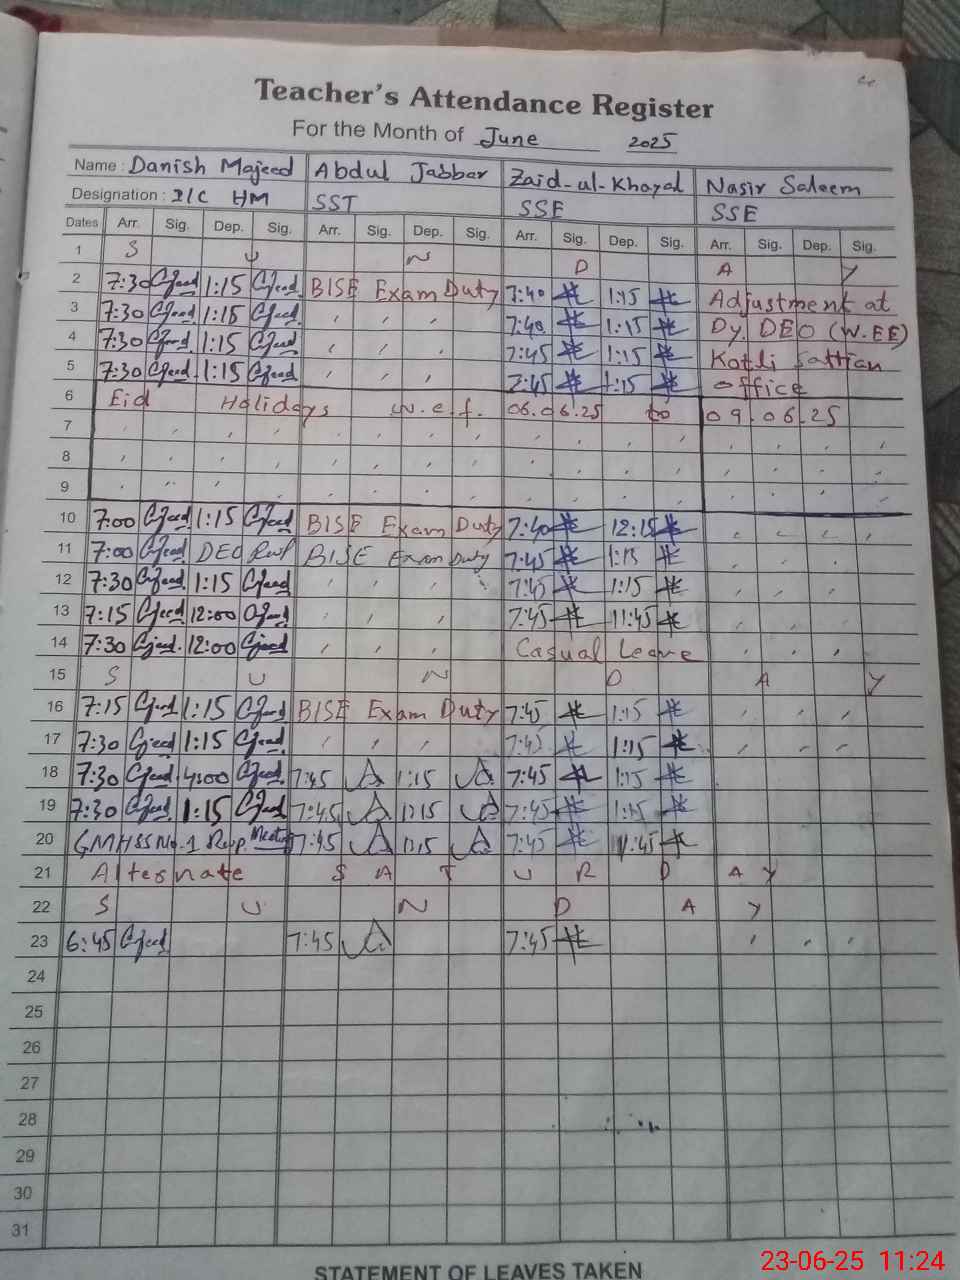 Teacher's Attendance Register
For the Month of June 2025
Name : Danish Majeed Abdul Jabbar Zaid-ul-Khayal Nasir Saleem
Designation : I/C HM SST SSE SSE
Dates Arr. Sig. Dep. Sig. Arr. Sig. Dep. Sig. Arr. Sig. Dep. Sig. Arr. Sig. Dep. Sig.
1 S U N D A Y
2 7:30 1:15 BISE Exam Duty 7:40 1:15 Adjustment at
3 7:30 1:15 7:40 1:15 Dy. DEO (W.EE)
4 7:30 1:15 7:45 1:15 Kotli Sattian
5 7:30 1:15 7:45 1:15 office
6 Eid Holidays w.e.f. 06.06.25 to 09.06.25
7
8
9
10 7:00 1:15 BISE Exam Duty 7:40 12:15
11 7:00 DEO BISE Exam Duty 7:45 1:15
12 7:30 1:15 7:45 1:15
13 7:15 12:00 7:45 11:45
14 7:30 12:00 Casual Leave
15 S U N D A Y
16 7:15 1:15 BISE Exam Duty 7:45 1:15
17 7:30 1:15 7:45 1:15
18 7:30 4:00 7:45 1:15 7:45 1:15
19 7:30 1:15 7:45 1:15 7:45 1:15
20 GMHSS No.1 Meeting 7:45 1:15 7:45 11:45
21 Alternate S A T U R D A Y
22 S U N D A Y
23 6:45 7:45 7:45
24
25
26
27
28
29
30
31
STATEMENT OF LEAVES TAKEN
23-06-25 11:24